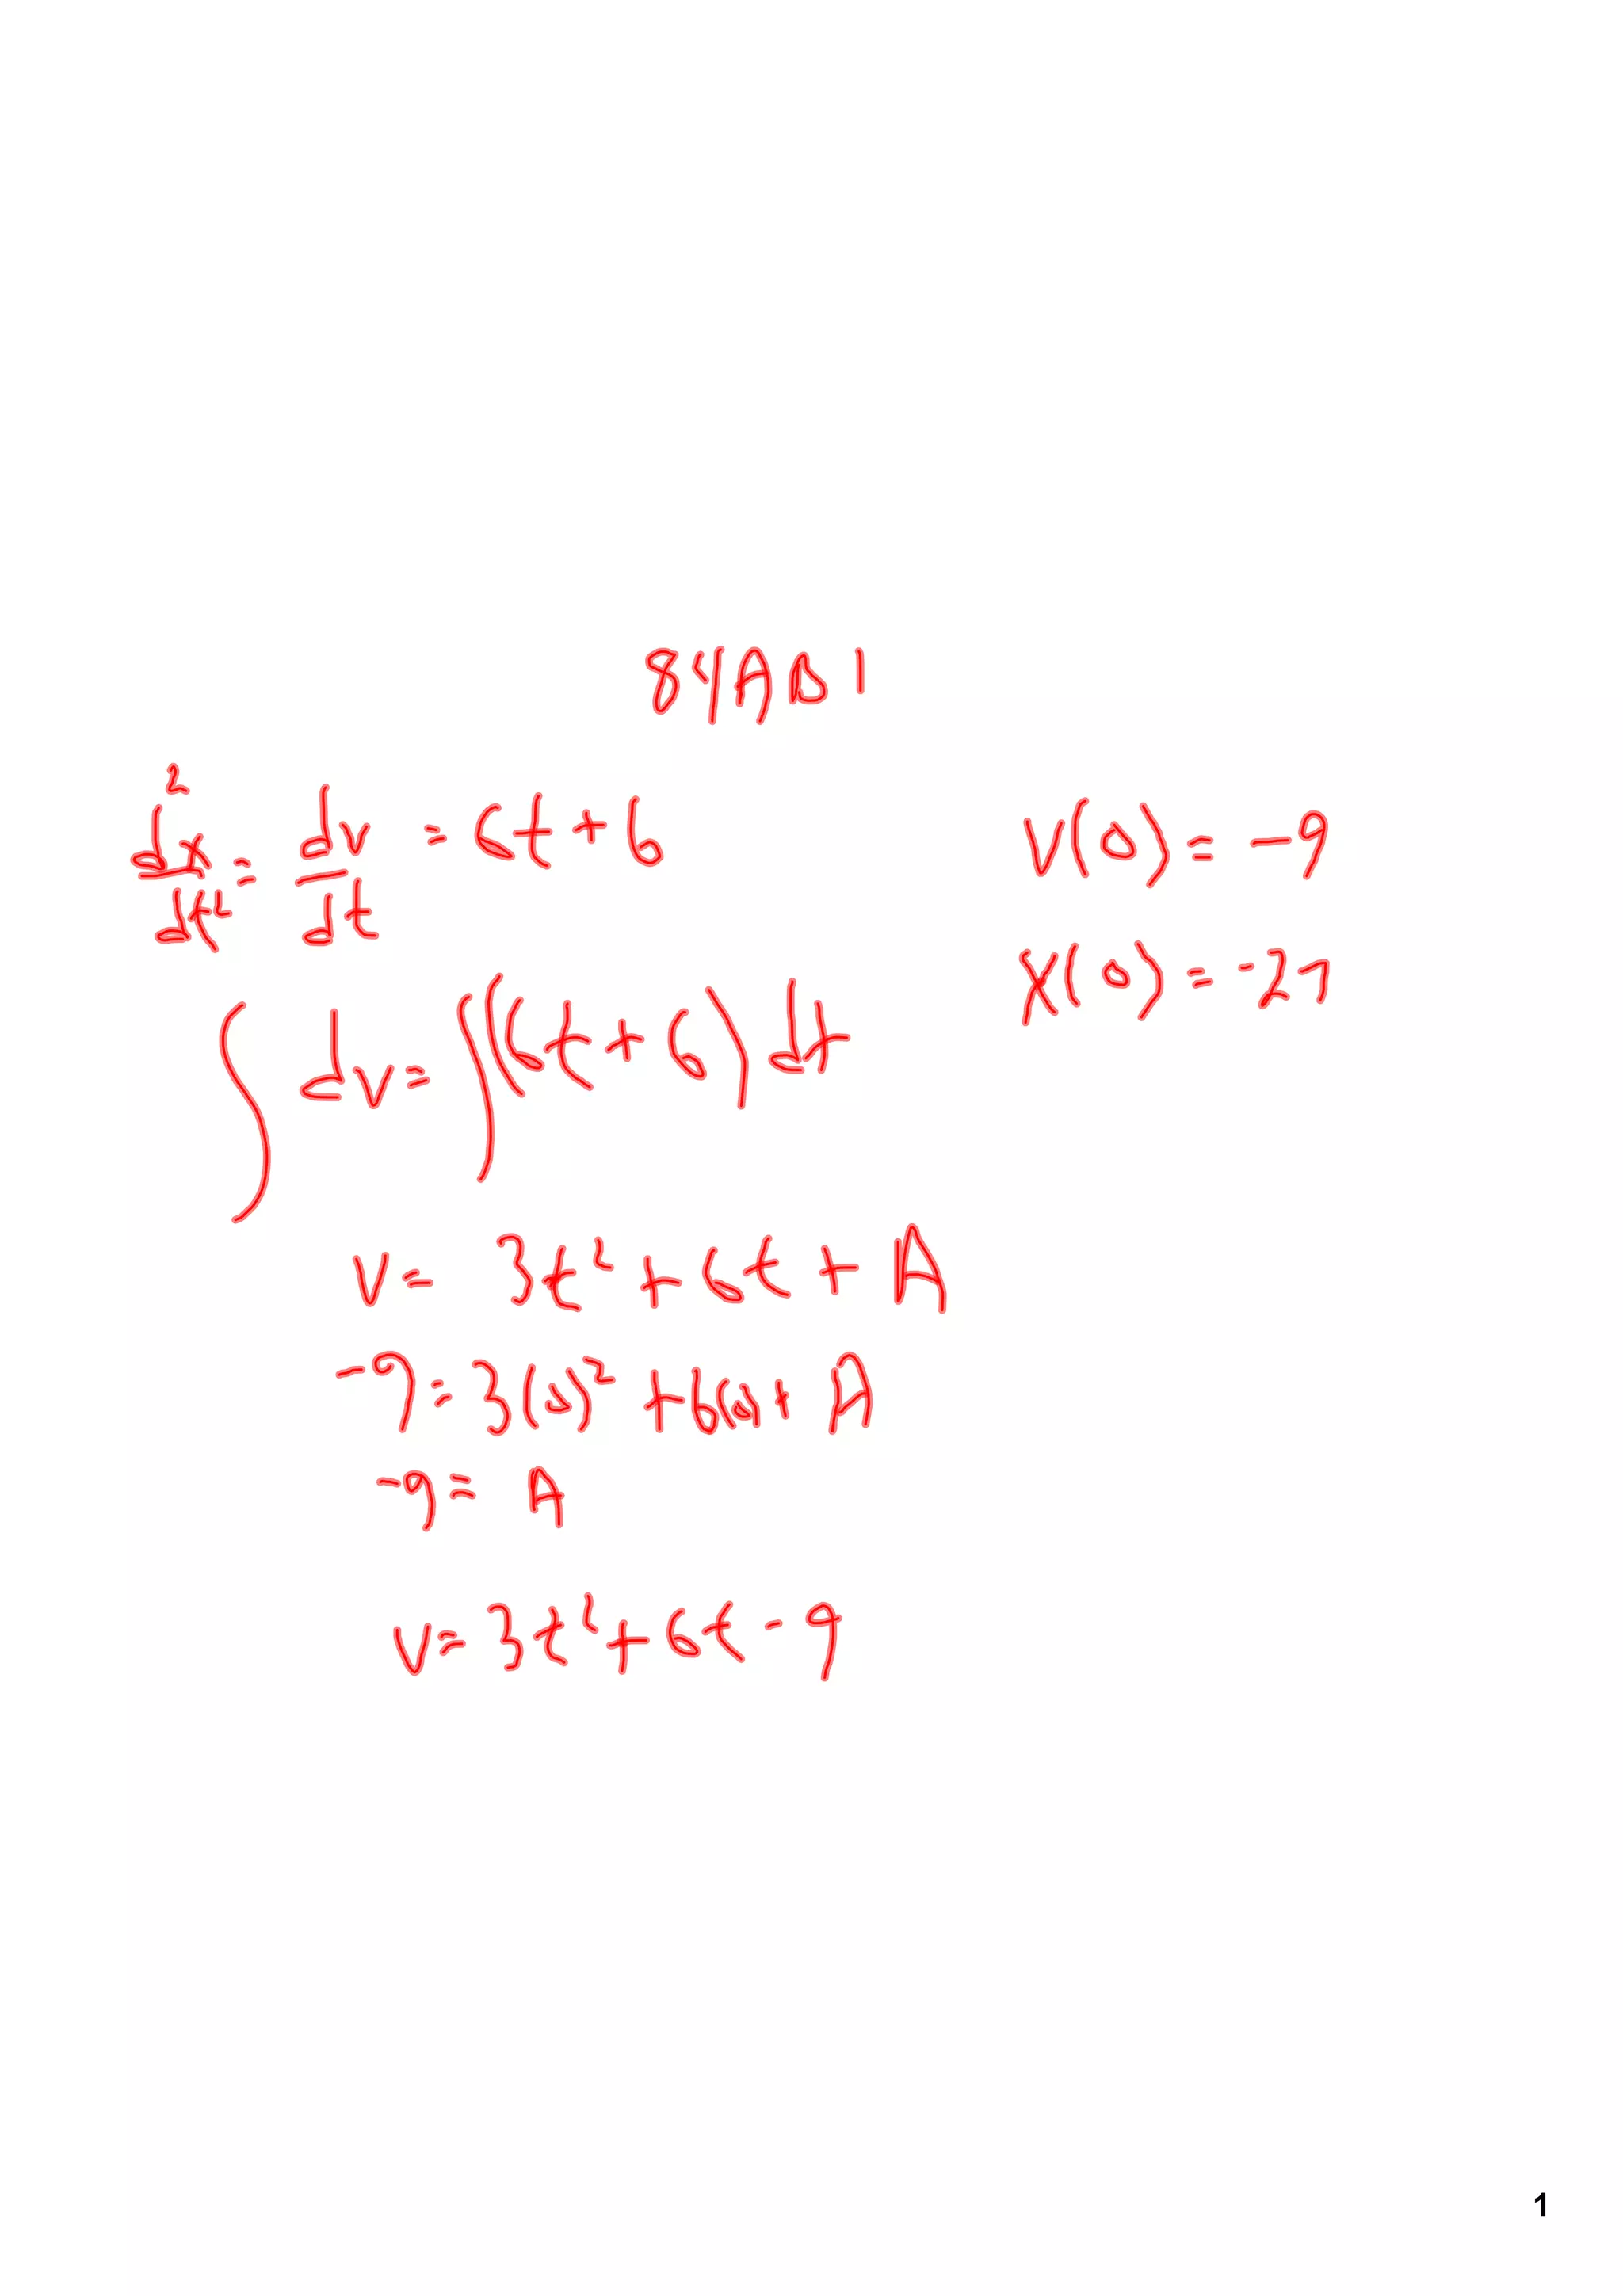 84AB1
d²x/dt² = dv/dt = 6t + 6
v(0) = -9
x(0) = -27
∫ dv = ∫(6t + 6) dt
v = 3t² + 6t + A
-9 = 3(0)² + 6(0) + A
-9 = A
v = 3t² + 6t - 9
1